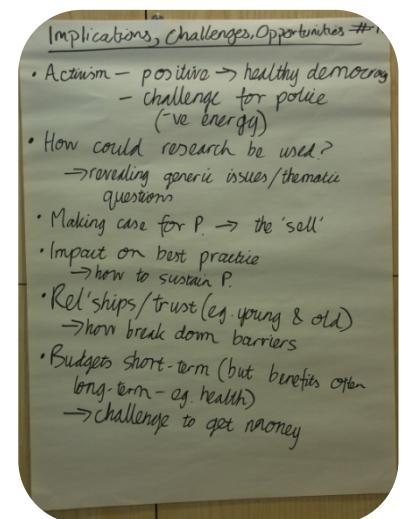 Implications, Challenges, Opportunities #1
• Activism – positive → healthy democracy
– challenge for police
(-ve energy)
• How could research be used?
→ revealing generic issues/thematic
questions
• Making case for P. → the 'sell'
• Impact on best practice
→ how to sustain P.
• Rel'ships/trust (eg. young & old)
→ how break down barriers
• Budgets short-term (but benefits often
long-term – eg. health)
→ challenge to get money